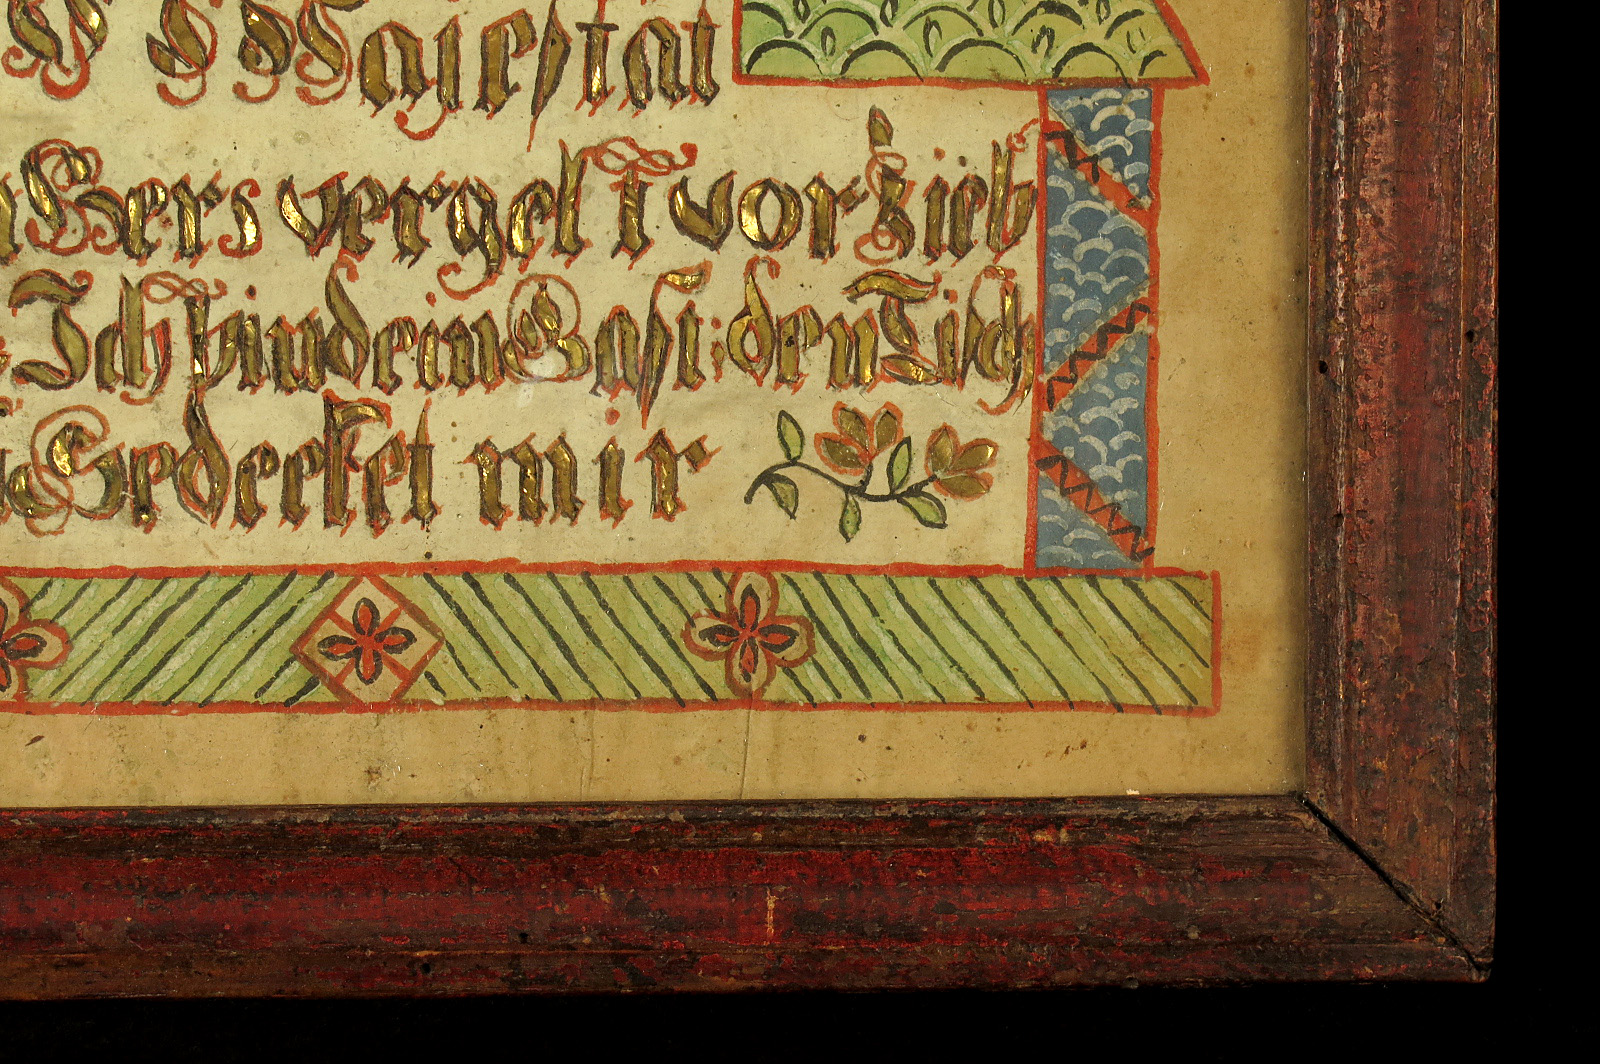 Majestat
Hers vergelt vor zieb
Ich bin dein Gast: den Tisch
Gedecket mir